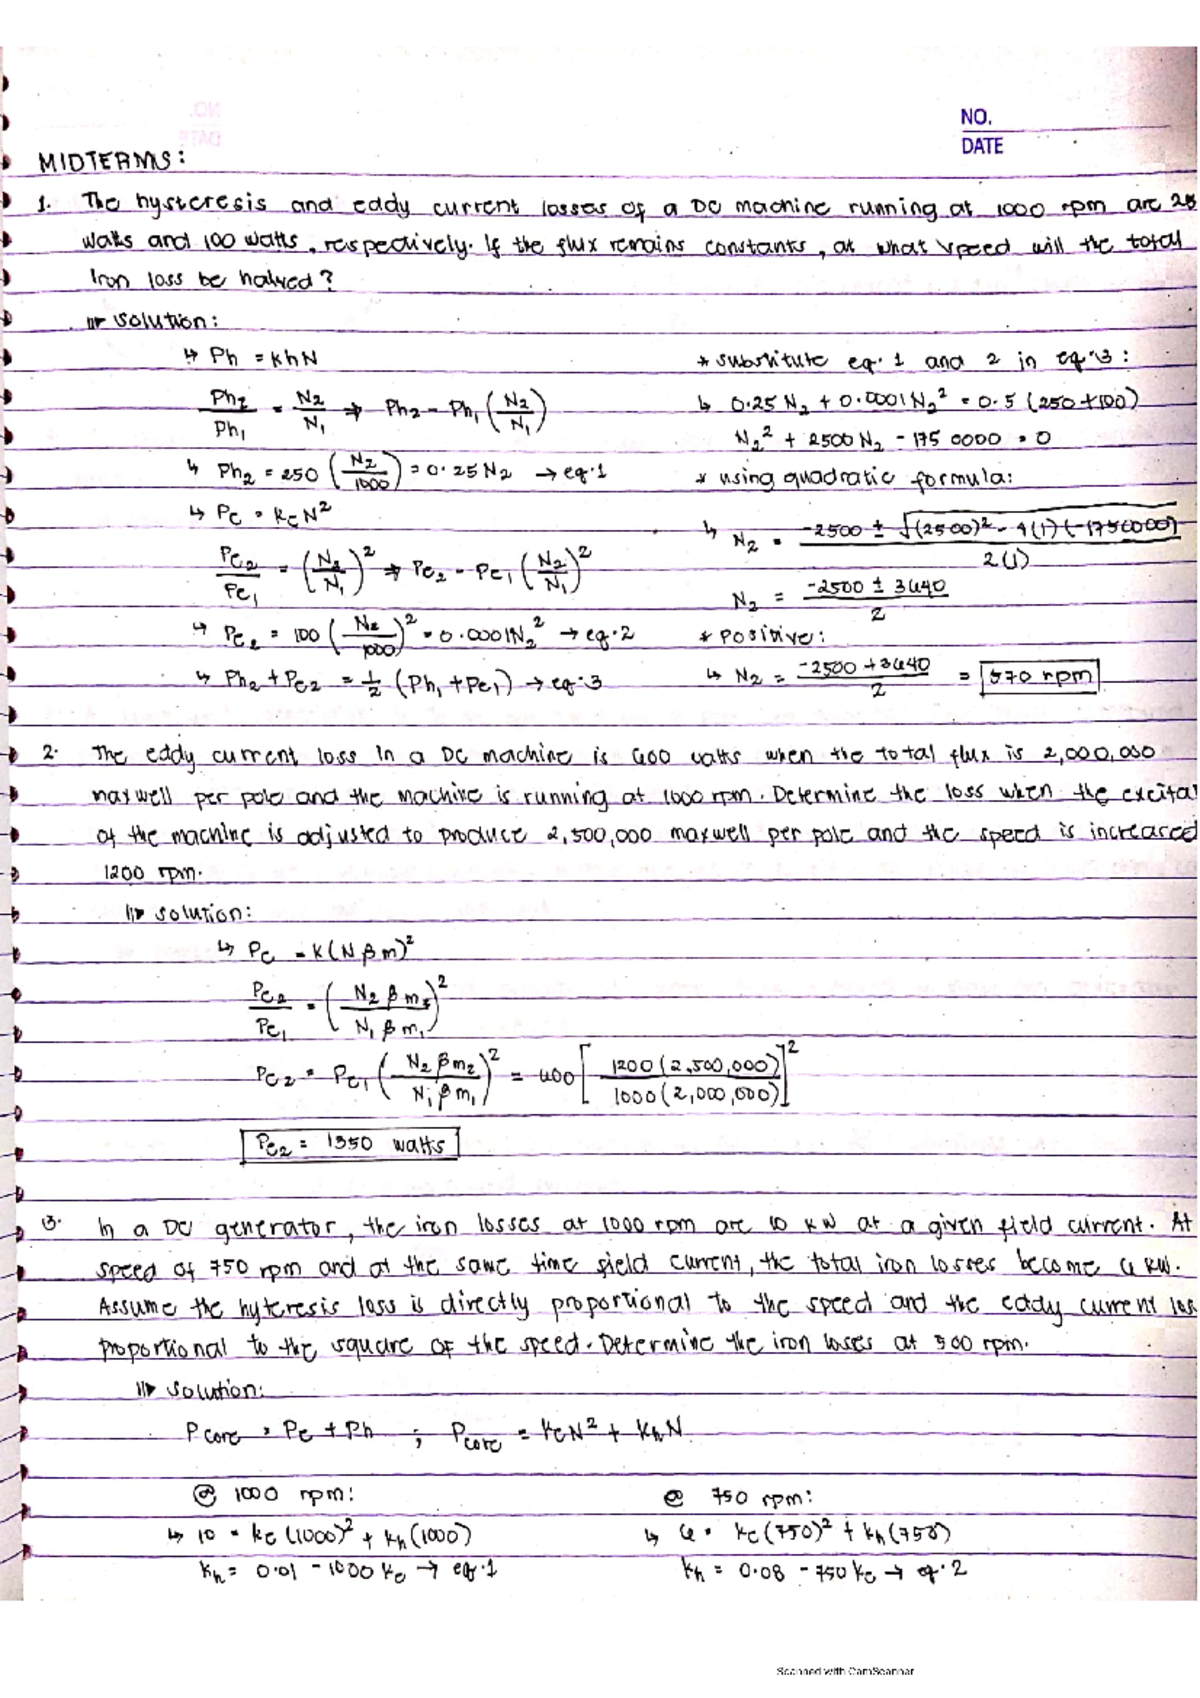 NO.
DATE
MIDTERMS:
1. The hysteresis and eddy current losses of a DC machine running at 1000 rpm are 25
Watts and 100 watts, respectively. If the flux remains constants, at what speed will the total
Iron loss be halved?
solution:
↳ Ph = KhN
Ph2/Ph1 = N2/N1 ⇒ Ph2 = Ph1 (N2/N1)
↳ Ph2 = 250 (N2/1000) = 0.25 N2 → eq.1
↳ Pc = KcN²
Pc2/Pc1 = (N2/N1)² ⇒ Pc2 = Pc1 (N2/N1)²
↳ Pc2 = 100 (N2/1000)² = 0.0001N2² → eq.2
↳ Ph2 + Pc2 = 1/2 (Ph1 + Pc1) → eq.3
* substitute eq. 1 and 2 in eq.3:
↳ 0.25 N2 + 0.0001N2² = 0.5 (250+100)
N2² + 2500 N2 - 175 0000 = 0
* using quadratic formula:
↳ N2 = (-2500 ± √((2500)² - 4(1)(-1750000))) / 2(1)
N2 = (-2500 ± 3640) / 2
* Positive:
↳ N2 = (-2500 + 3640) / 2 = 570 rpm
2. The eddy current loss in a DC machine is 600 watts when the total flux is 2,000,000
maxwell per pole and the machine is running at 1000 rpm. Determine the loss when the excita
of the machine is adjusted to produce 2,500,000 maxwell per pole and the speed is increased
1200 rpm.
solution:
↳ Pc = K(Nβm)²
Pc2/Pc1 = (N2βm2/N1βm1)²
Pc2 = Pc1 (N2βm2/N1βm1)² = 600 [1200(2,500,000)/1000(2,000,000)]²
Pc2 = 1350 watts
3. In a DC generator, the iron losses at 1000 rpm are 10 KW at a given field current. At
speed of 750 rpm and at the same time field current, the total iron losses become 6 KW.
Assume the hyteresis loss is directly proportional to the speed and the eddy current los
proportional to the square of the speed. Determine the iron loses at 500 rpm.
solution:
Pcore = Pc + Ph ; Pcore = KcN² + KhN
@ 1000 rpm:
↳ 10 = Kc (1000)² + Kh (1000)
Kh = 0.01 - 1000 Kc → eq.1
@ 750 rpm:
↳ 6 = Kc (750)² + Kh (750)
Kh = 0.08 - 750 Kc → eq.2
Scanned with CamScanner